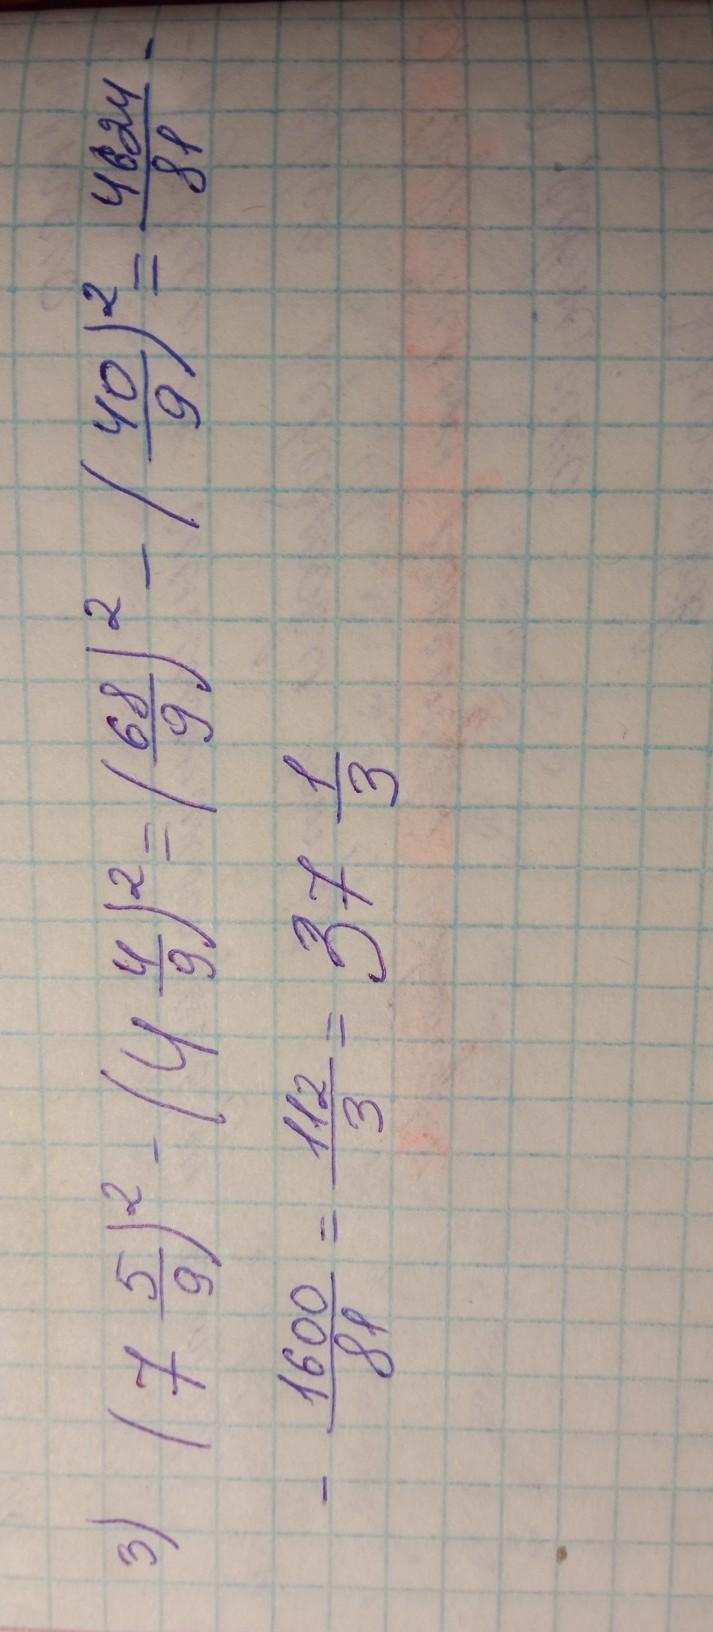 3) (7 5/9)² - (4 4/9)² = (68/9)² - (40/9)² = 4624/81 -
- 1600/81 = 112/3 = 37 1/3